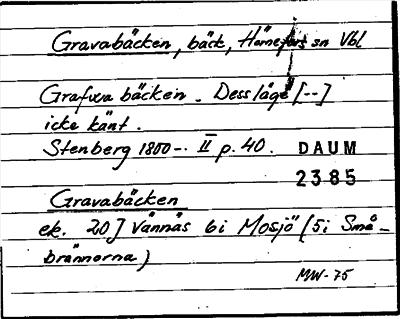 Gravabäcken, bäck, Hörnefors sn Vbl
Grafwa bäcken. Dess läge [--]
icke känt.
Stenberg 1800-. II p. 40. DAUM
2385
Gravabäcken
ek. 20 J Vännäs bi Mosjö (5i Små-
brännorna)
MW-75